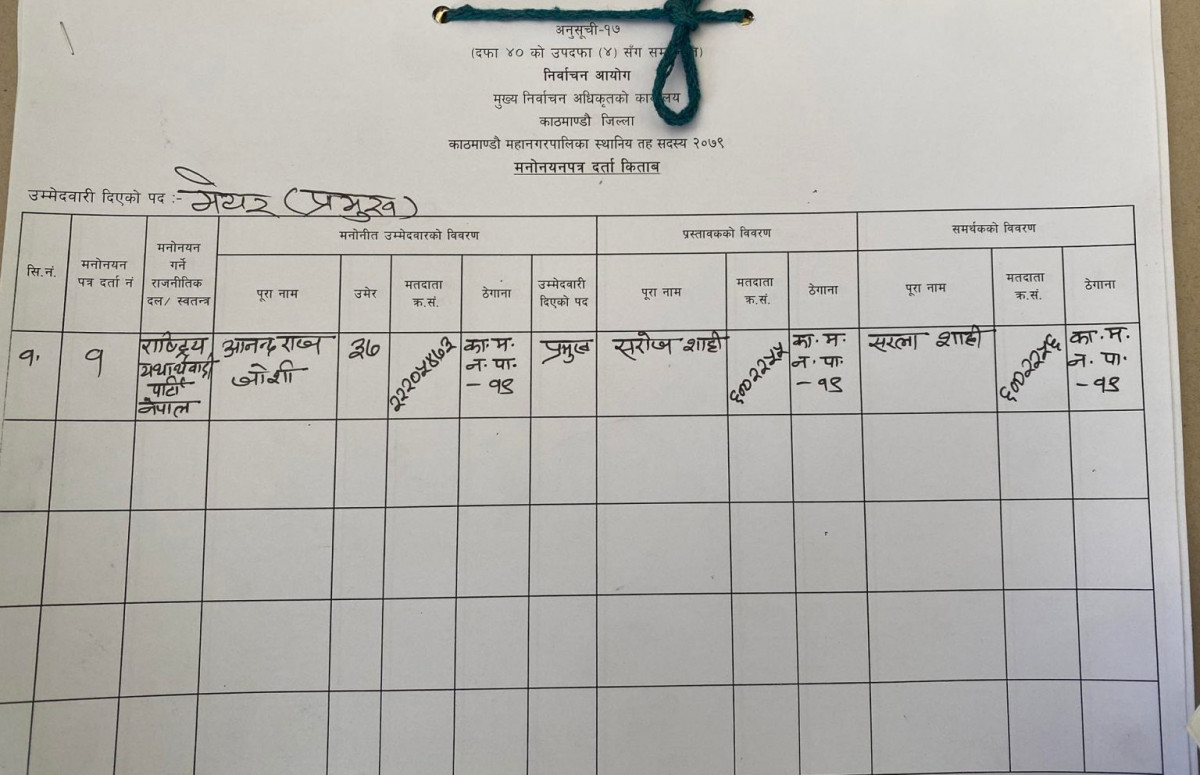 अनुसूची-१७
(दफा ४० को उपदफा (४) सँग
निर्वाचन आयोग
मुख्य निर्वाचन अधिकृतको
काठमाण्डौ जिल्ला
काठमाण्डौ महानगरपालिका स्थानिय तह सदस्य २०७९
मनोनयनपत्र दर्ता किताब
उम्मेदवारी दिएको पद :- मेयर (प्रमुख)
मनोनीत उम्मेदवारको विवरण प्रस्तावकको विवरण समर्थकको विवरण
सि.नं.
मनोनयन
पत्र दर्ता नं
मनोनयन
गर्ने
राजनीतिक
दल/ स्वतन्त्र
पूरा नाम
उमेर
मतदाता
क्र.सं.
ठेगाना
उम्मेदवारी
दिएको पद
पूरा नाम
मतदाता
क्र.सं.
ठेगाना
पूरा नाम
मतदाता
क्र.सं.
ठेगाना
१.
१
राष्ट्रिय
यथार्थवादी
पार्टी
नेपाल
आनन्द राज
जोशी
३७
२२२०५४७३
का.म.
न.पा.
- १९
प्रमुख
सरोज शाही
का.म.
न.पा.
- १९
सरला शाही
का.म.
न.पा.
- १९